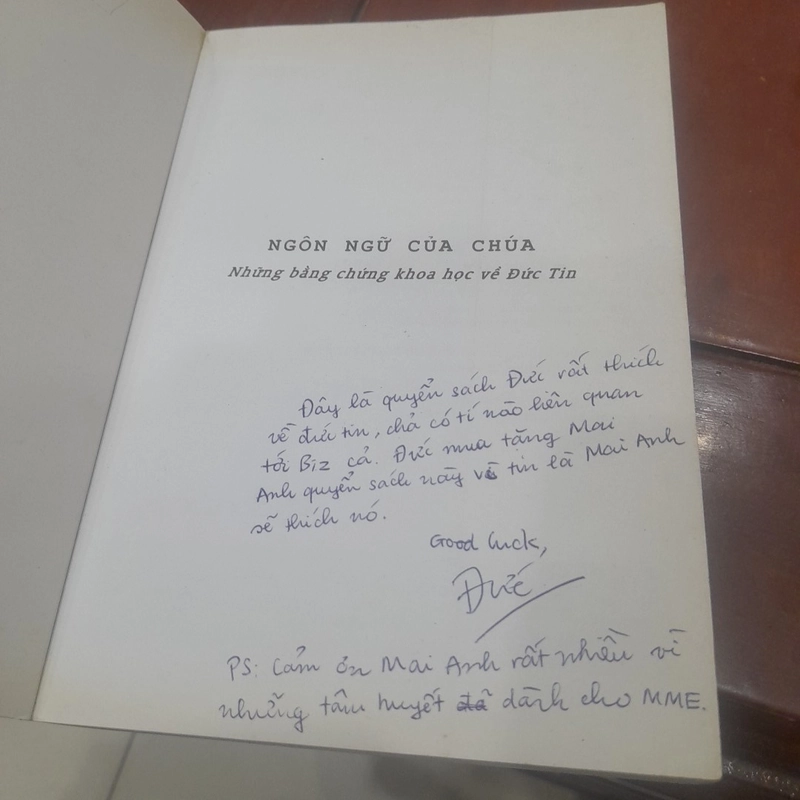 NGÔN NGỮ CỦA CHÚA
Những bằng chứng khoa học về Đức Tin
Đây là quyển sách Đức rất thích
về đức tin, chả có tí nào liên quan
tới Biz cả. Đức mua tặng Mai
Anh quyển sách này vì tin là Mai Anh
sẽ thích nó.
Good luck,
Đức
PS: Cảm ơn Mai Anh rất nhiều vì
những tâm huyết đã dành cho MME.